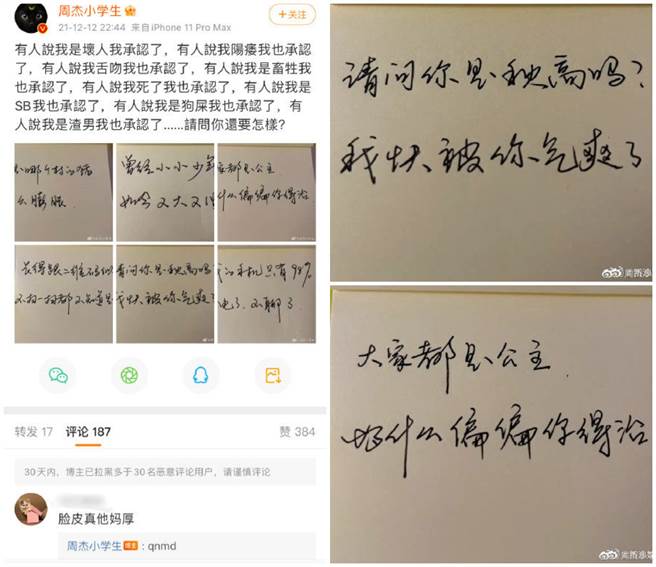 周杰小学生
21-12-12 22:44 来自iPhone 11 Pro Max
+关注
有人說我是壞人我承認了，有人說我陽痿我也承認
了，有人說我舌吻我也承認了，有人說我是畜牲我
也承認了，有人說我死了我也承認了，有人說我是
SB我也承認了，有人說我是狗屎我也承認了，有
人說我是渣男我也承認了......請問你還要怎樣?
哪个村的
么膨胀
曾经小小少年
如今又大又
家都是公主
什么偏偏你得治
长得跟二维码似
不扫一扫都不知道
请问你是秋高吗
我快被你气爽了
的手机只有98%
电了 不聊了
转发 17 评论 187 赞 384
30天内，博主已拉黑多于30名恶意评论用户，请谨慎评论
脸皮真他妈厚
周杰小学生 : qnmd
请问你是秋高吗?
我快被你气爽了
大家都是公主
为什么偏偏你得治